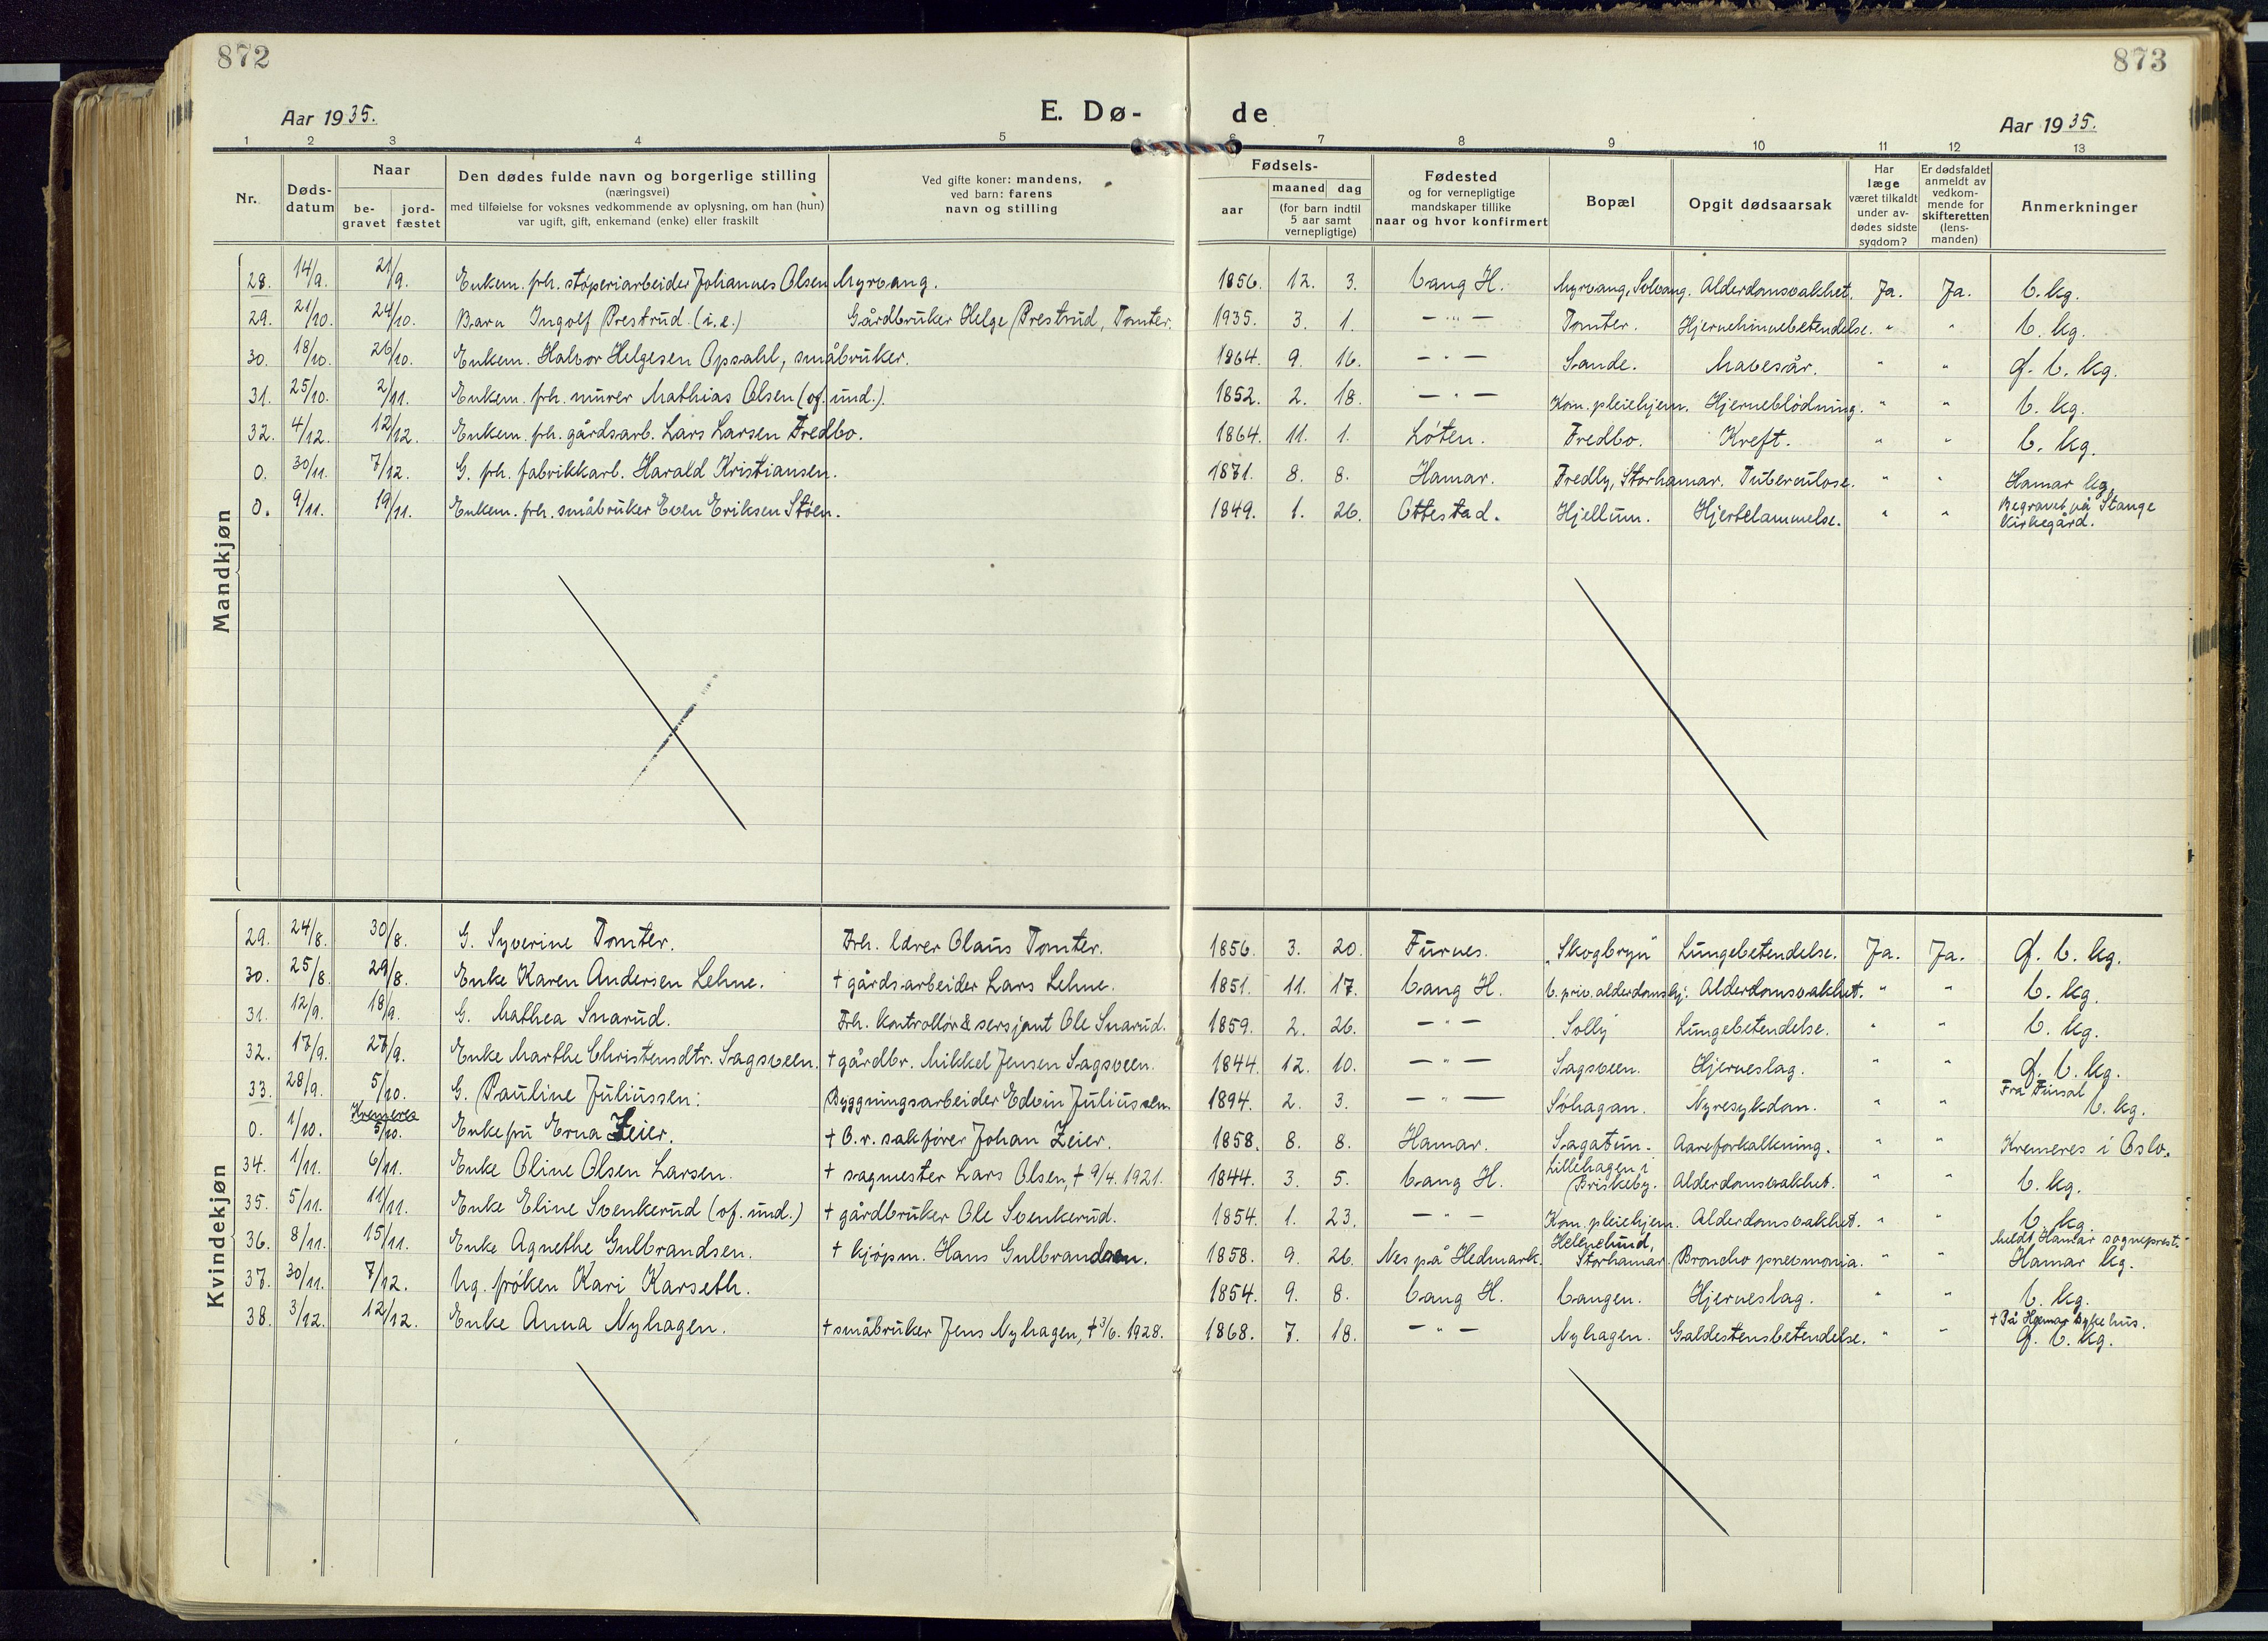 872
873
Aar 1935.
E. Dø-
de
Aar 1935.
1 2 3 4 5 6 7 8 9 10 11 12 13
Nr.
Døds-
datum
Naar
be-
gravet
jord-
fæstet
Den dødes fulde navn og borgerlige stilling
(næringsvei)
med tilføielse for voksnes vedkommende av oplysning, om han (hun)
var ugift, gift, enkemand (enke) eller fraskilt
Ved gifte koner: mandens,
ved barn: farens
navn og stilling
Fødsels-
aar
maaned dag
(for barn indtil
5 aar samt
vernepligtige)
Fødested
og for vernepligtige
mandskaper tillike
naar og hvor konfirmert
Bopæl
Opgit dødsaarsak
Har
læge
været tilkaldt
under av-
dødes sidste
sygdom?
Er dødsfaldet
anmeldt av
vedkom-
mende for
skifteretten
(lens-
manden)
Anmerkninger
Mandkjøn
28. 14/9. 21/9. Enkem. frh. støperiarbeider Johannes Olsen Myrvang. 1856. 12. 3. Vang H. Myrvang, Solvang. Alderdomsvakhet. Ja. Ja. V. kg.
29. 21/10. 24/10. Barn Ingolf Prestrud. (i.e.) Gårdbruker Helge Prestrud, Tomter. 1935. 3. 1. — " — Tomter. Hjernehinnebetendelse. " " V. kg.
30. 18/10. 26/10. Enkem. Halvor Helgesen Opsahl, småbruker. 1864. 9. 16. — " — Sande. Mavesår. " " Ø. V. kg.
31. 25/10. 2/11. Enkem. frh. murer Mathias Olsen (of. und.). 1852. 2. 18. — " — Kom. pleiehjem. Hjerneblödning. " " V. kg.
32. 4/12. 12/12. Enkem. frh. gårdsarb. Lars Larsen Fredbo. 1864. 11. 1. Løten. Fredbo. Kreft. " " V. kg.
0. 30/11. 7/12. G. frh. fabrikkarb. Harald Kristiansen. 1871. 8. 8. Hamar. Fredly, Storhamar. Tuberculose. " " Hamar kg.
0. 9/11. 19/11. Enkem. frh. småbruker Even Eriksen Støen. 1849. 1. 26. Ottestad. Hjellum. Hjertelammelse. " " Begravet på Stange
kirkegård.
Kvindekjøn
29. 24/8. 30/8. G. Syverine Tomter. Frh. lærer Olaus Tomter. 1856. 3. 20. Furnes. "Skogbryn" Lungebetendelse. Ja. Ja. Ø. V. kg.
30. 25/8. 29/8. Enke Karen Andersen Lehne. † gårdsarbeider Lars Lehne. 1851. 11. 17. Vang H. V. priv. alderdomshj. Alderdomsvakhet. " " V. kg.
31. 12/9. 18/9. G. Mathea Snarud. Frh. kontrollör & sersjant Ole Snarud. 1859. 2. 26. — " — Solly. Lungebetendelse. " " V. kg.
32. 17/9. 27/9. Enke Marthe Christensdtr. Sagsveen. † gårdbr. Mikkel Jensen Sagsveen. 1844. 12. 10. — " — Sagsveen. Hjerneslag. " " Ø. V. kg.
33. 28/9. 5/10. G. Pauline Juliussen. Byggningsarbeider Edvin Juliussen. 1894. 2. 3. — " — Söhagan. Nyresykdom. " " Fra Finsal
V. kg.
Kremeres
0. 1/10. 5/10. Enkefru Erna Zeier. † O.r. sakfører Johan Zeier. 1858. 8. 8. Hamar. Sagatun. Aareforkalkning. " " Kremeres i Oslo.
34. 1/11. 6/11. Enke Oline Olsen Larsen. † sagmester Lars Olsen, † 9/4. 1921. 1844. 3. 5. Vang H. Lillehagen i
Briskeby. Alderdomsvakhet. " " V. kg.
35. 5/11. 11/11. Enke Eline Svenkerud (of. und.) † gårdbruker Ole Svenkerud. 1854. 1. 23. — " — Kom. pleiehjem. Alderdomsvakhet. " " V. kg.
36. 8/11. 15/11. Enke Agnethe Gulbrandsen. † kjøpm. Hans Gulbrandsen. 1858. 9. 26. Nes på Hedmark. Helenelund,
Storhamar. Broncho pneumonia. " " Meldt Hamar sogneprest.
Hamar kg.
37. 30/11. 7/12. Ug. frøken Kari Karseth. 1854. 9. 8. Vang H. Vangen. Hjerneslag. " " V. kg.
38. 3/12. 12/12. Enke Anna Nyhagen. † småbruker Jens Nyhagen, † 3/6. 1928. 1868. 7. 18. — " — Nyhagen. Galdestensbetendelse. " " † På Hamar Sykehus.
Ø. V. kg.